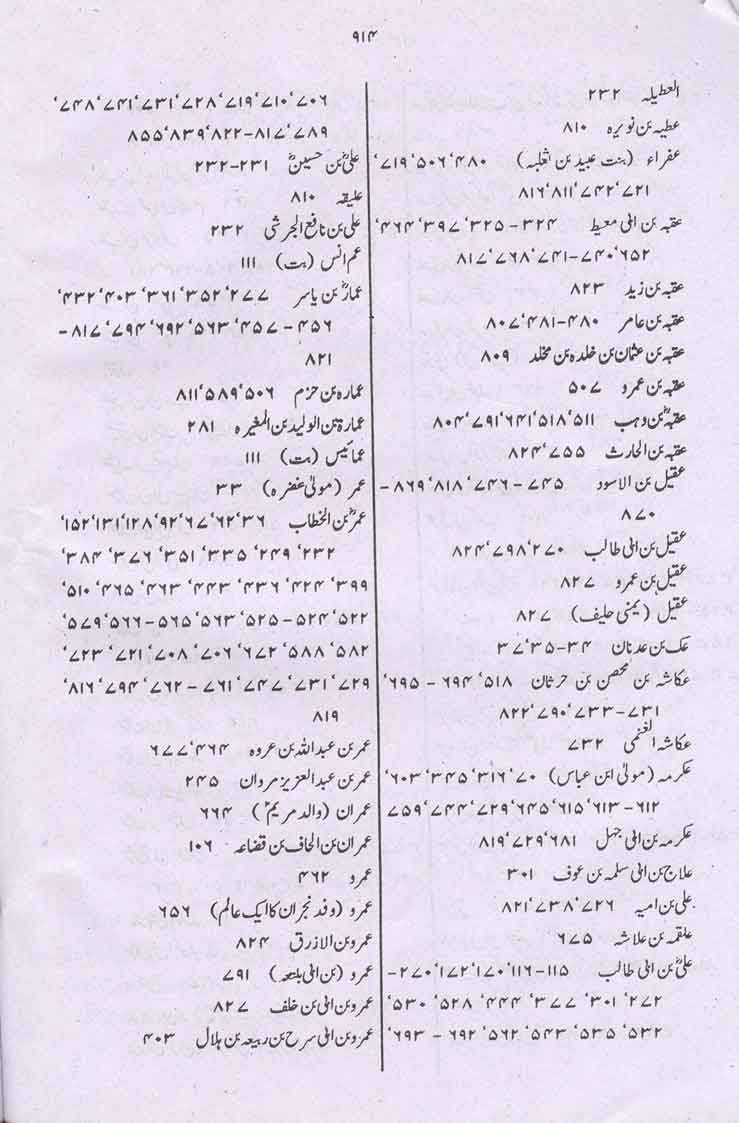 ۹۱۴
العطیلہ ۲۳۲
عطیہ بن نویرہ ۸۱۰
عفراء (بنت عبید بن ثعلبہ) ۴۸۰‘۵۰۶‘۷۱۹‘
۷۲۱‘۷۴۲‘۸۱۱‘۸۱۶
عقبہ بن ابی معیط ۳۲۴-۳۲۵‘۳۹۷‘۴۶۴‘
۶۵۲‘۷۴۰-۷۴۱‘۷۶۸‘۸۱۷
عقبہ بن زید ۸۲۳
عقبہ بن عامر ۴۸۰-۴۸۱‘۸۰۷
عقبہ بن عثمان بن خلدہ بن مخلد ۸۰۹
عقبہ بن عمرو ۵۰۷
عقبہؓ بن وہب ۵۱۱‘۵۱۸‘۶۴۱‘۷۹۱‘۸۰۴
عقبہ بن الحارث ۷۵۵‘۸۲۴
عقیل بن الاسود ۷۴۵-۷۴۶‘۸۱۸‘۸۶۹-
۸۷۰
عقیل بن ابی طالب ۲۷۰‘۷۹۸‘۸۲۴
عقیل بن عمرو ۸۲۷
عقیل (یمنی حلیف) ۸۲۷
عک بن عدنان ۳۴-۳۵‘۳۷
عکاشہ بن محصن بن حرثان ۵۱۸‘۶۹۴-۶۹۵‘
۷۳۱-۷۳۳‘۷۹۰‘۸۲۲
عکاشہ الغنمی ۷۳۲
عکرمہ (مولیٰ ابن عباس) ۷۰‘۳۱۶‘۳۴۵‘۶۰۳‘
۶۱۲-۶۱۳‘۶۱۵‘۶۴۵‘۷۲۹‘۷۴۴‘۷۵۹
عکرمہ بن ابی جہل ۶۸۱‘۷۲۹‘۸۱۹
علاج بن ابی سلمہ بن عوف ۳۰۱
علی بن امیہ ۷۲۶‘۷۳۸‘۸۲۱
علقمہ بن علاثہ ۶۷۵
علیؓ بن ابی طالب ۱۱۵-۱۱۶‘۱۷۰‘۱۷۲‘۲۷۰-
۲۷۲‘۳۰۱‘۳۷۷‘۴۴۴‘۵۲۸‘۵۳۰‘
۵۳۲‘۵۳۵‘۵۴۳‘۵۶۲‘۶۹۲-۶۹۳‘
۷۰۶‘۷۱۰‘۷۱۹‘۷۲۸‘۷۳۱‘۷۴۱‘۷۴۸‘
۷۸۹‘۸۱۷-۸۲۲‘۸۳۹‘۸۵۵
علیؓ بن حسینؓ ۲۳۱-۲۳۲
علیقہ ۸۱۰
علی بن نافع الجرشی ۲۳۲
عم انس (بت) ۱۱۱
عمارؓ بن یاسر ۲۷۷‘۳۵۲‘۳۶۱‘۴۰۳‘۴۳۲‘
۴۵۶-۴۵۷‘۵۶۳‘۶۹۲‘۷۹۴‘۸۱۷-
۸۲۱
عمارہ بن حزم ۵۰۶‘۵۸۹‘۸۱۱
عمارۃ بن الولید بن المغیرہ ۲۸۱
عمائیس (بت) ۱۱۱
عمر (مولیٰ غفرہ) ۳۳
عمرؓ بن الخطاب ۳۶‘۶۲‘۶۷‘۹۲‘۱۲۸‘۱۳۱‘۱۵۲‘
۲۳۲‘۲۴۹‘۳۳۵‘۳۵۱‘۳۷۶‘۳۸۴‘
۳۹۹‘۴۲۴‘۴۳۶‘۴۴۳‘۴۶۳‘۴۶۵‘۵۱۰‘
۵۲۲‘۵۲۴-۵۲۵‘۵۶۳‘۵۶۵-۵۶۶‘۵۷۹‘
۵۸۲‘۵۸۸‘۶۷۲‘۷۰۶‘۷۰۸‘۷۲۱‘۷۲۳‘
۷۲۹‘۷۳۱‘۷۴۷‘۷۶۱-۷۶۲‘۷۹۴‘۸۱۶‘
۸۱۹
عمر بن عبداللہ بن عروہ ۴۶۴‘۶۷۷
عمر بن عبدالعزیز مروان ۲۴۵
عمران (والد مریمؑ) ۶۶۴
عمران بن الحاف بن قضاعہ ۱۰۶
عمرو ۴۶۲
عمرو (وفد نجران کا ایک عالم) ۶۵۶
عمرو بن الازرق ۸۲۴
عمرو (بن ابی بلتعہ) ۷۹۱
عمرو بن ابی بن خلف ۸۲۷
عمرو بن ابی سرح بن ربیعہ بن ہلال ۴۰۳